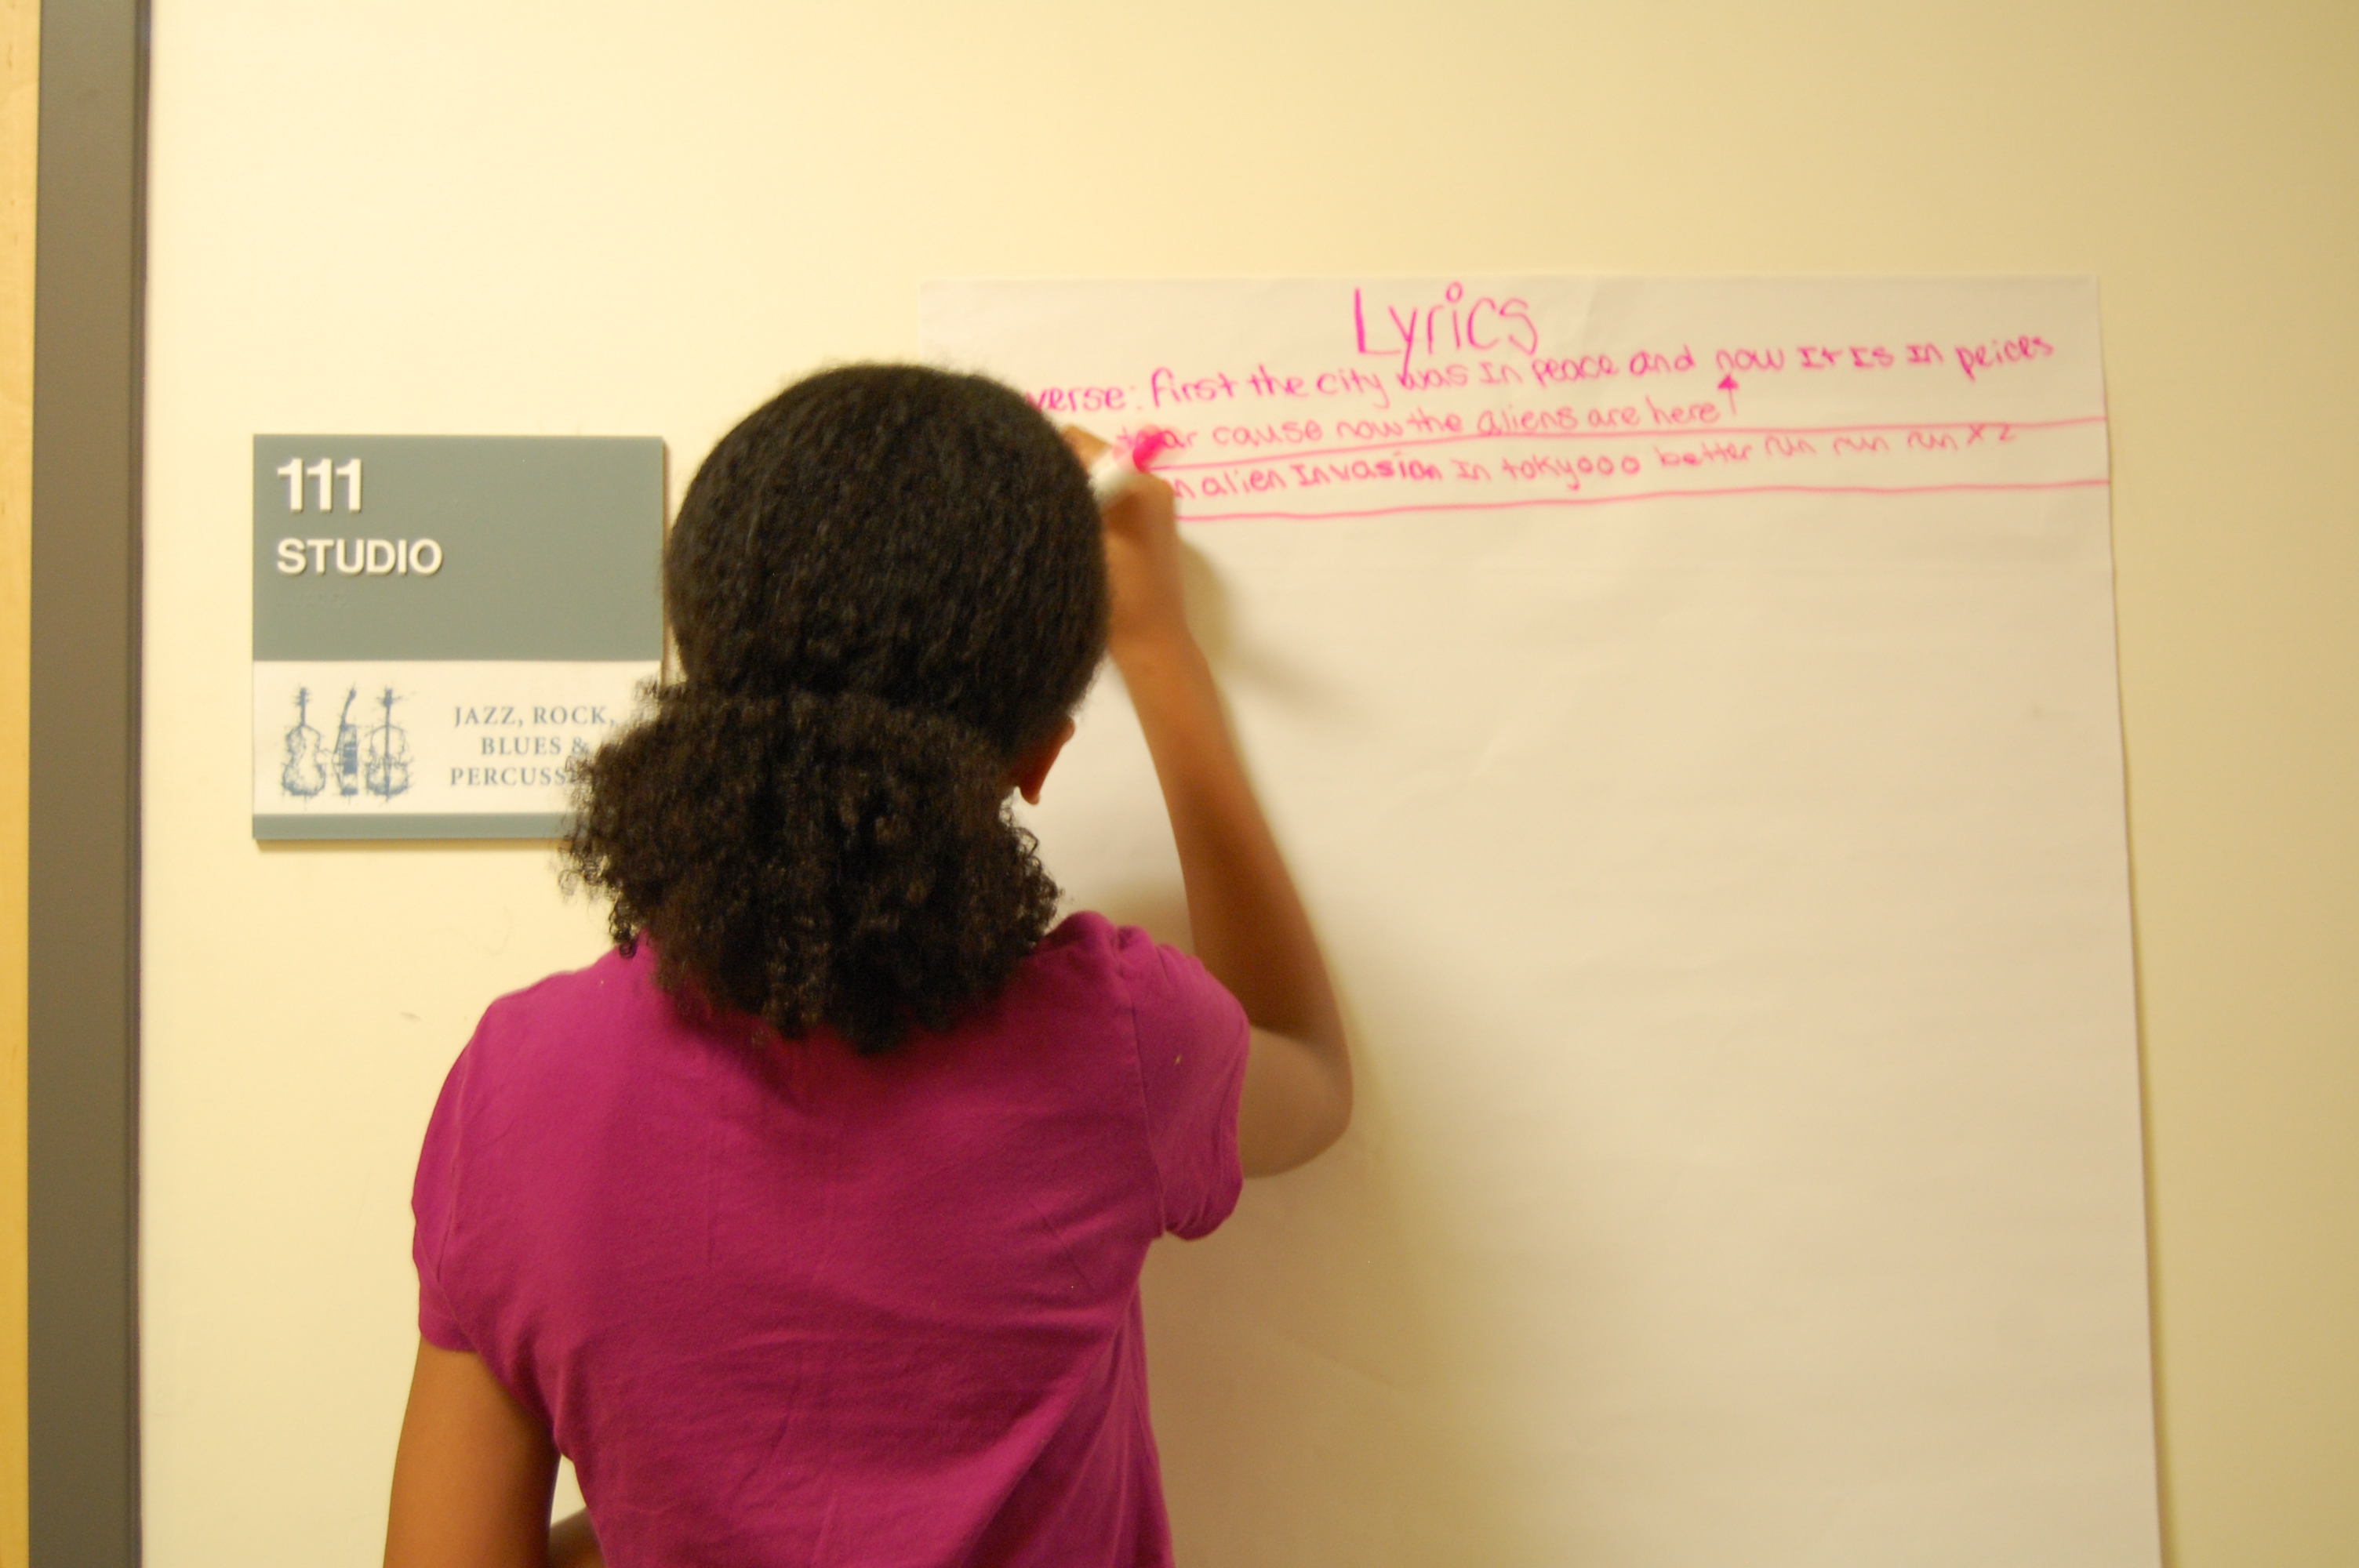 111
STUDIO
JAZZ, ROCK,
BLUES &
Lyrics
verse: first the city was In peace and now It Is In peices
cause now the aliens are here
alien Invasion In tokyooo better run run run x2